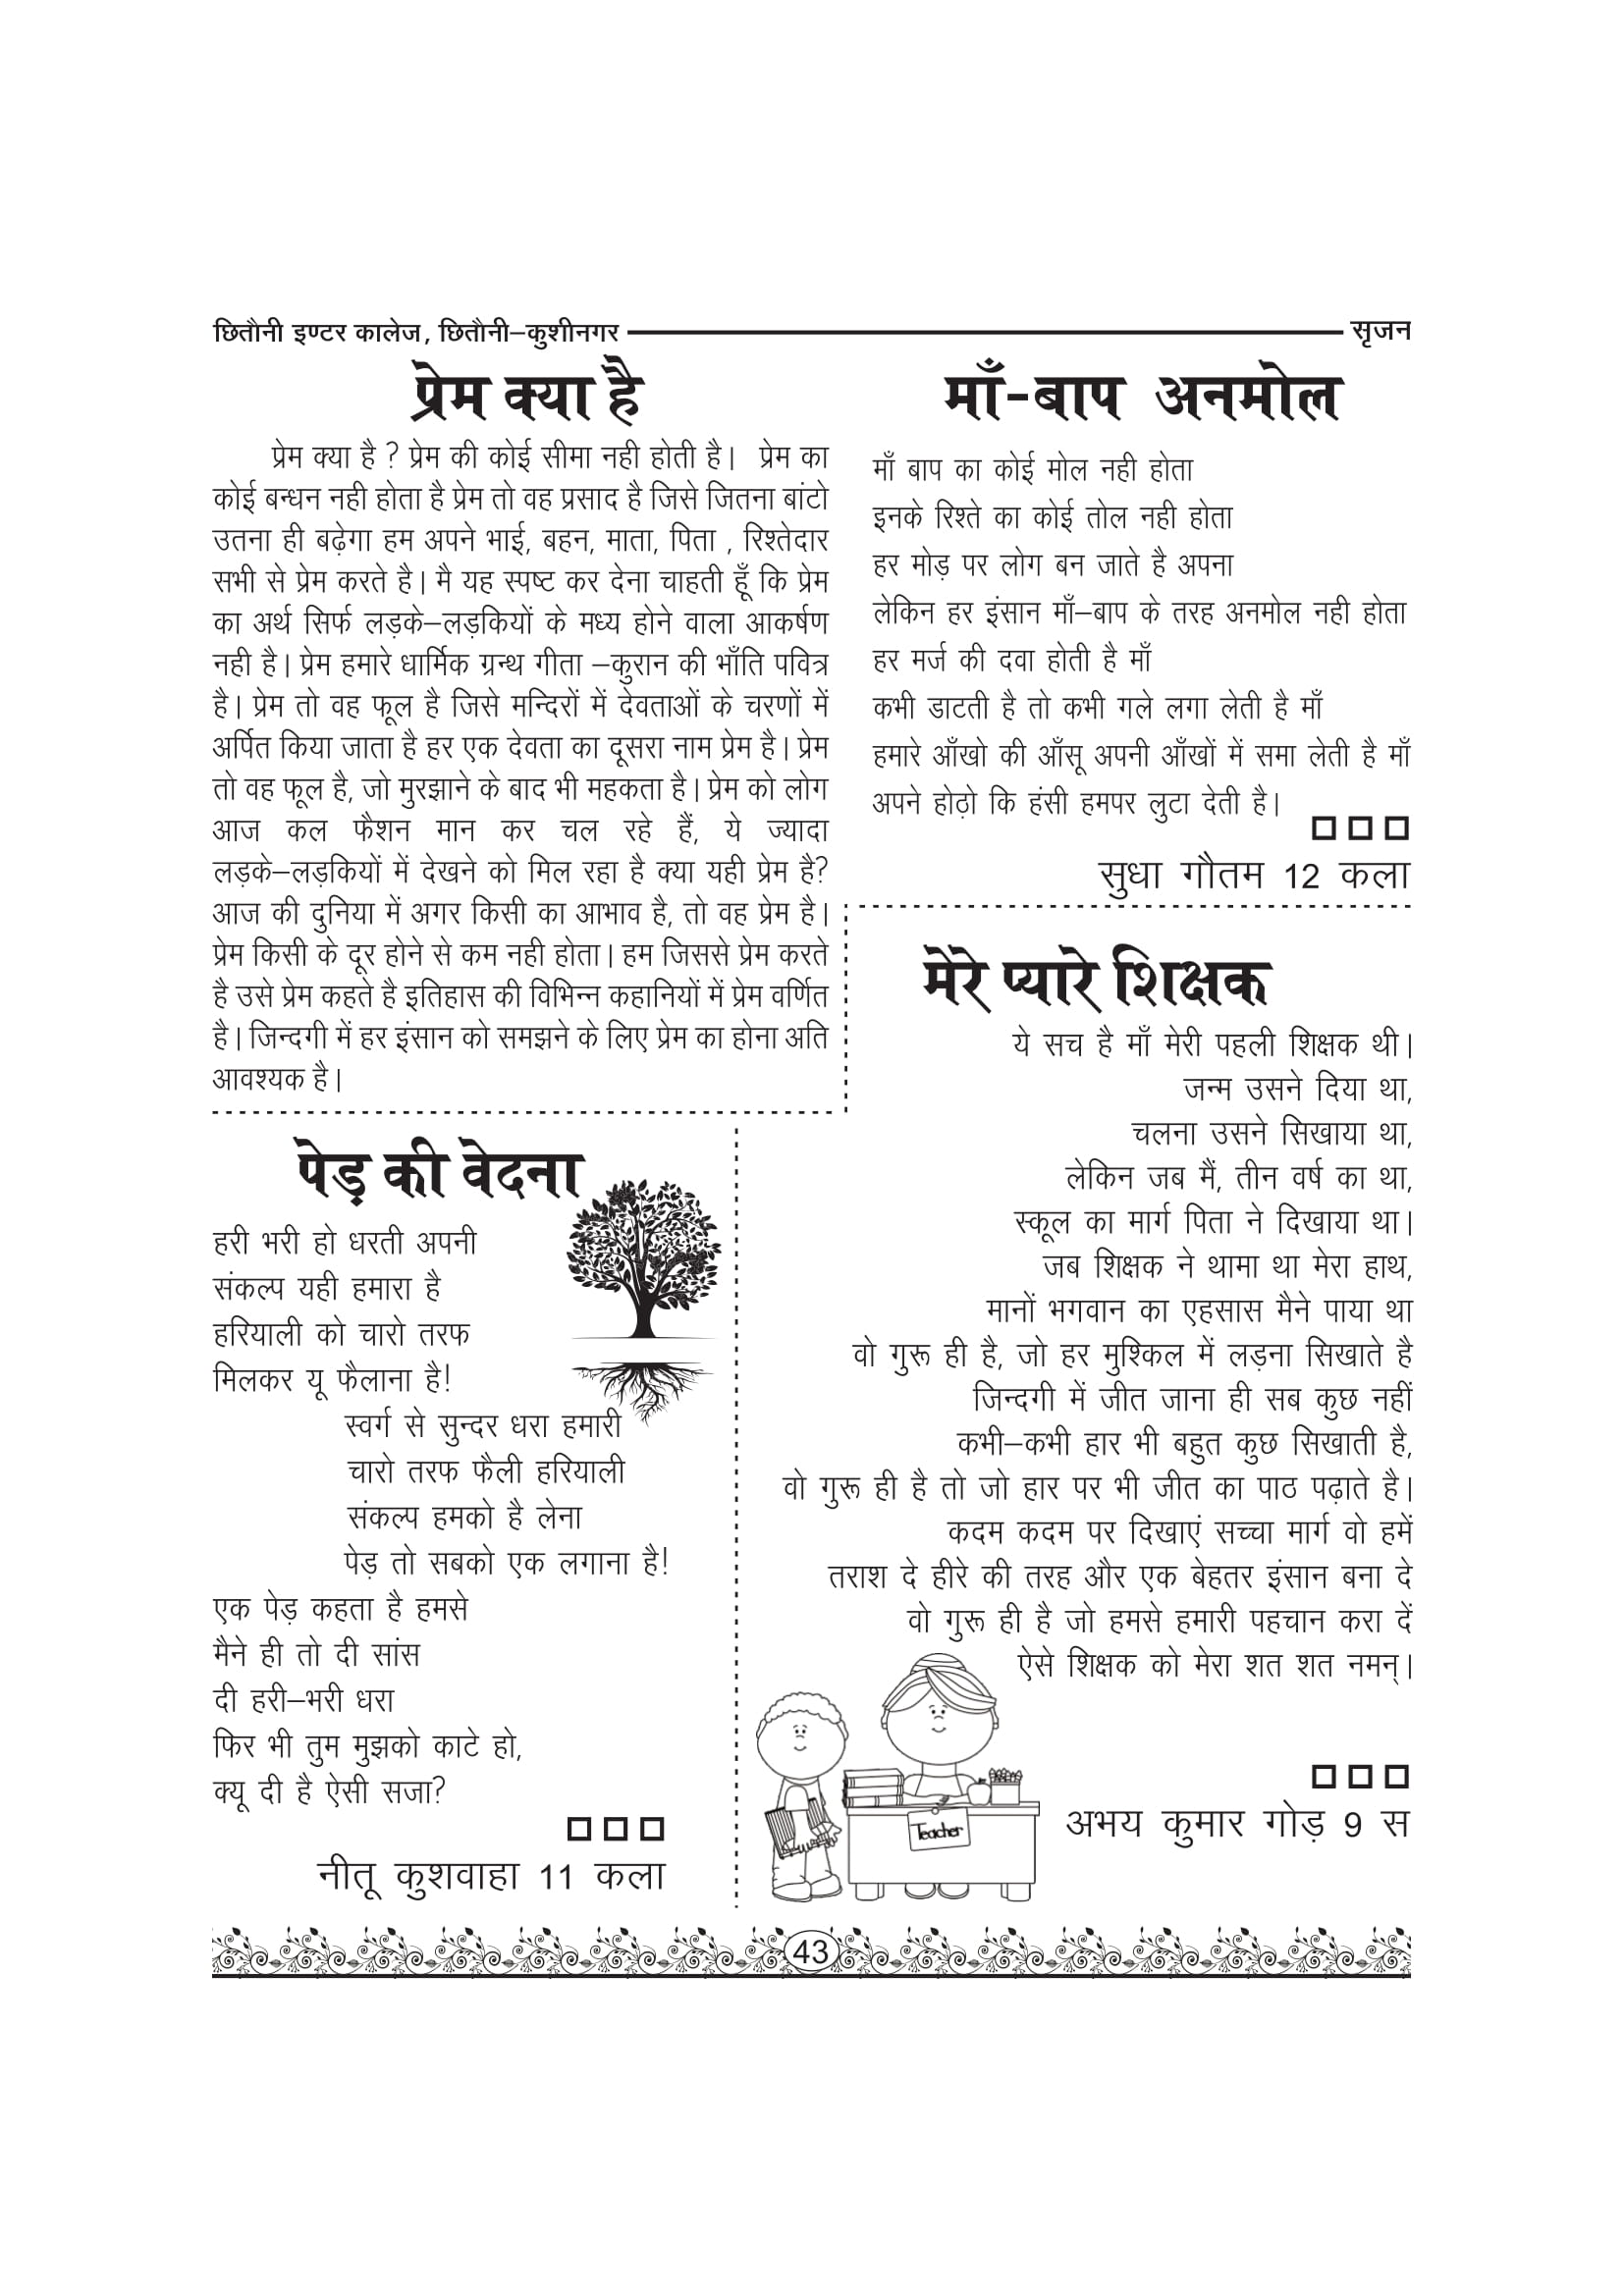 छितौनी इण्टर कालेज, छितौनी–कुशीनगर
सृजन
प्रेम क्या है
प्रेम क्या है ? प्रेम की कोई सीमा नही होती है। प्रेम का
कोई बन्धन नही होता है प्रेम तो वह प्रसाद है जिसे जितना बांटो
उतना ही बढ़ेगा हम अपने भाई, बहन, माता, पिता , रिश्तेदार
सभी से प्रेम करते है। मै यह स्पष्ट कर देना चाहती हूँ कि प्रेम
का अर्थ सिर्फ लड़के–लड़कियों के मध्य होने वाला आकर्षण
नही है। प्रेम हमारे धार्मिक ग्रन्थ गीता –कुरान की भाँति पवित्र
है। प्रेम तो वह फूल है जिसे मन्दिरों में देवताओं के चरणों में
अर्पित किया जाता है हर एक देवता का दूसरा नाम प्रेम है। प्रेम
तो वह फूल है, जो मुरझाने के बाद भी महकता है। प्रेम को लोग
आज कल फैशन मान कर चल रहे हैं, ये ज्यादा
लड़के–लड़कियों में देखने को मिल रहा है क्या यही प्रेम है?
आज की दुनिया में अगर किसी का आभाव है, तो वह प्रेम है।
प्रेम किसी के दूर होने से कम नही होता। हम जिससे प्रेम करते
है उसे प्रेम कहते है इतिहास की विभिन्न कहानियों में प्रेम वर्णित
है। जिन्दगी में हर इंसान को समझने के लिए प्रेम का होना अति
आवश्यक है।
माँ-बाप अनमोल
माँ बाप का कोई मोल नही होता
इनके रिश्ते का कोई तोल नही होता
हर मोड़ पर लोग बन जाते है अपना
लेकिन हर इंसान माँ–बाप के तरह अनमोल नही होता
हर मर्ज की दवा होती है माँ
कभी डाटती है तो कभी गले लगा लेती है माँ
हमारे आँखो की आँसू अपनी आँखों में समा लेती है माँ
अपने होठ़ो कि हंसी हमपर लुटा देती है।
सुधा गौतम 12 कला
मेरे प्यारे शिक्षक
ये सच है माँ मेरी पहली शिक्षक थी।
जन्म उसने दिया था,
चलना उसने सिखाया था,
लेकिन जब मैं, तीन वर्ष का था,
स्कूल का मार्ग पिता ने दिखाया था।
जब शिक्षक ने थामा था मेरा हाथ,
मानों भगवान का एहसास मैने पाया था
वो गुरू ही है, जो हर मुश्किल में लड़ना सिखाते है
जिन्दगी में जीत जाना ही सब कुछ नहीं
कभी–कभी हार भी बहुत कुछ सिखाती है,
वो गुरू ही है तो जो हार पर भी जीत का पाठ पढ़ाते है।
कदम कदम पर दिखाएं सच्चा मार्ग वो हमें
तराश दे हीरे की तरह और एक बेहतर इंसान बना दे
वो गुरू ही है जो हमसे हमारी पहचान करा दें
ऐसे शिक्षक को मेरा शत शत नमन्।
Teacher
अभय कुमार गोड़ 9 स
पेड़ की वेदना
हरी भरी हो धरती अपनी
संकल्प यही हमारा है
हरियाली को चारो तरफ
मिलकर यू फैलाना है!
स्वर्ग से सुन्दर धरा हमारी
चारो तरफ फैली हरियाली
संकल्प हमको है लेना
पेड़ तो सबको एक लगाना है!
एक पेड़ कहता है हमसे
मैने ही तो दी सांस
दी हरी–भरी धरा
फिर भी तुम मुझको काटे हो,
क्यू दी है ऐसी सजा?
नीतू कुशवाहा 11 कला
43